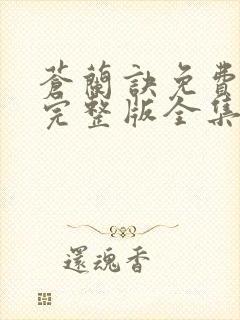 蒼蘭訣免費
完整版全集
還魂香